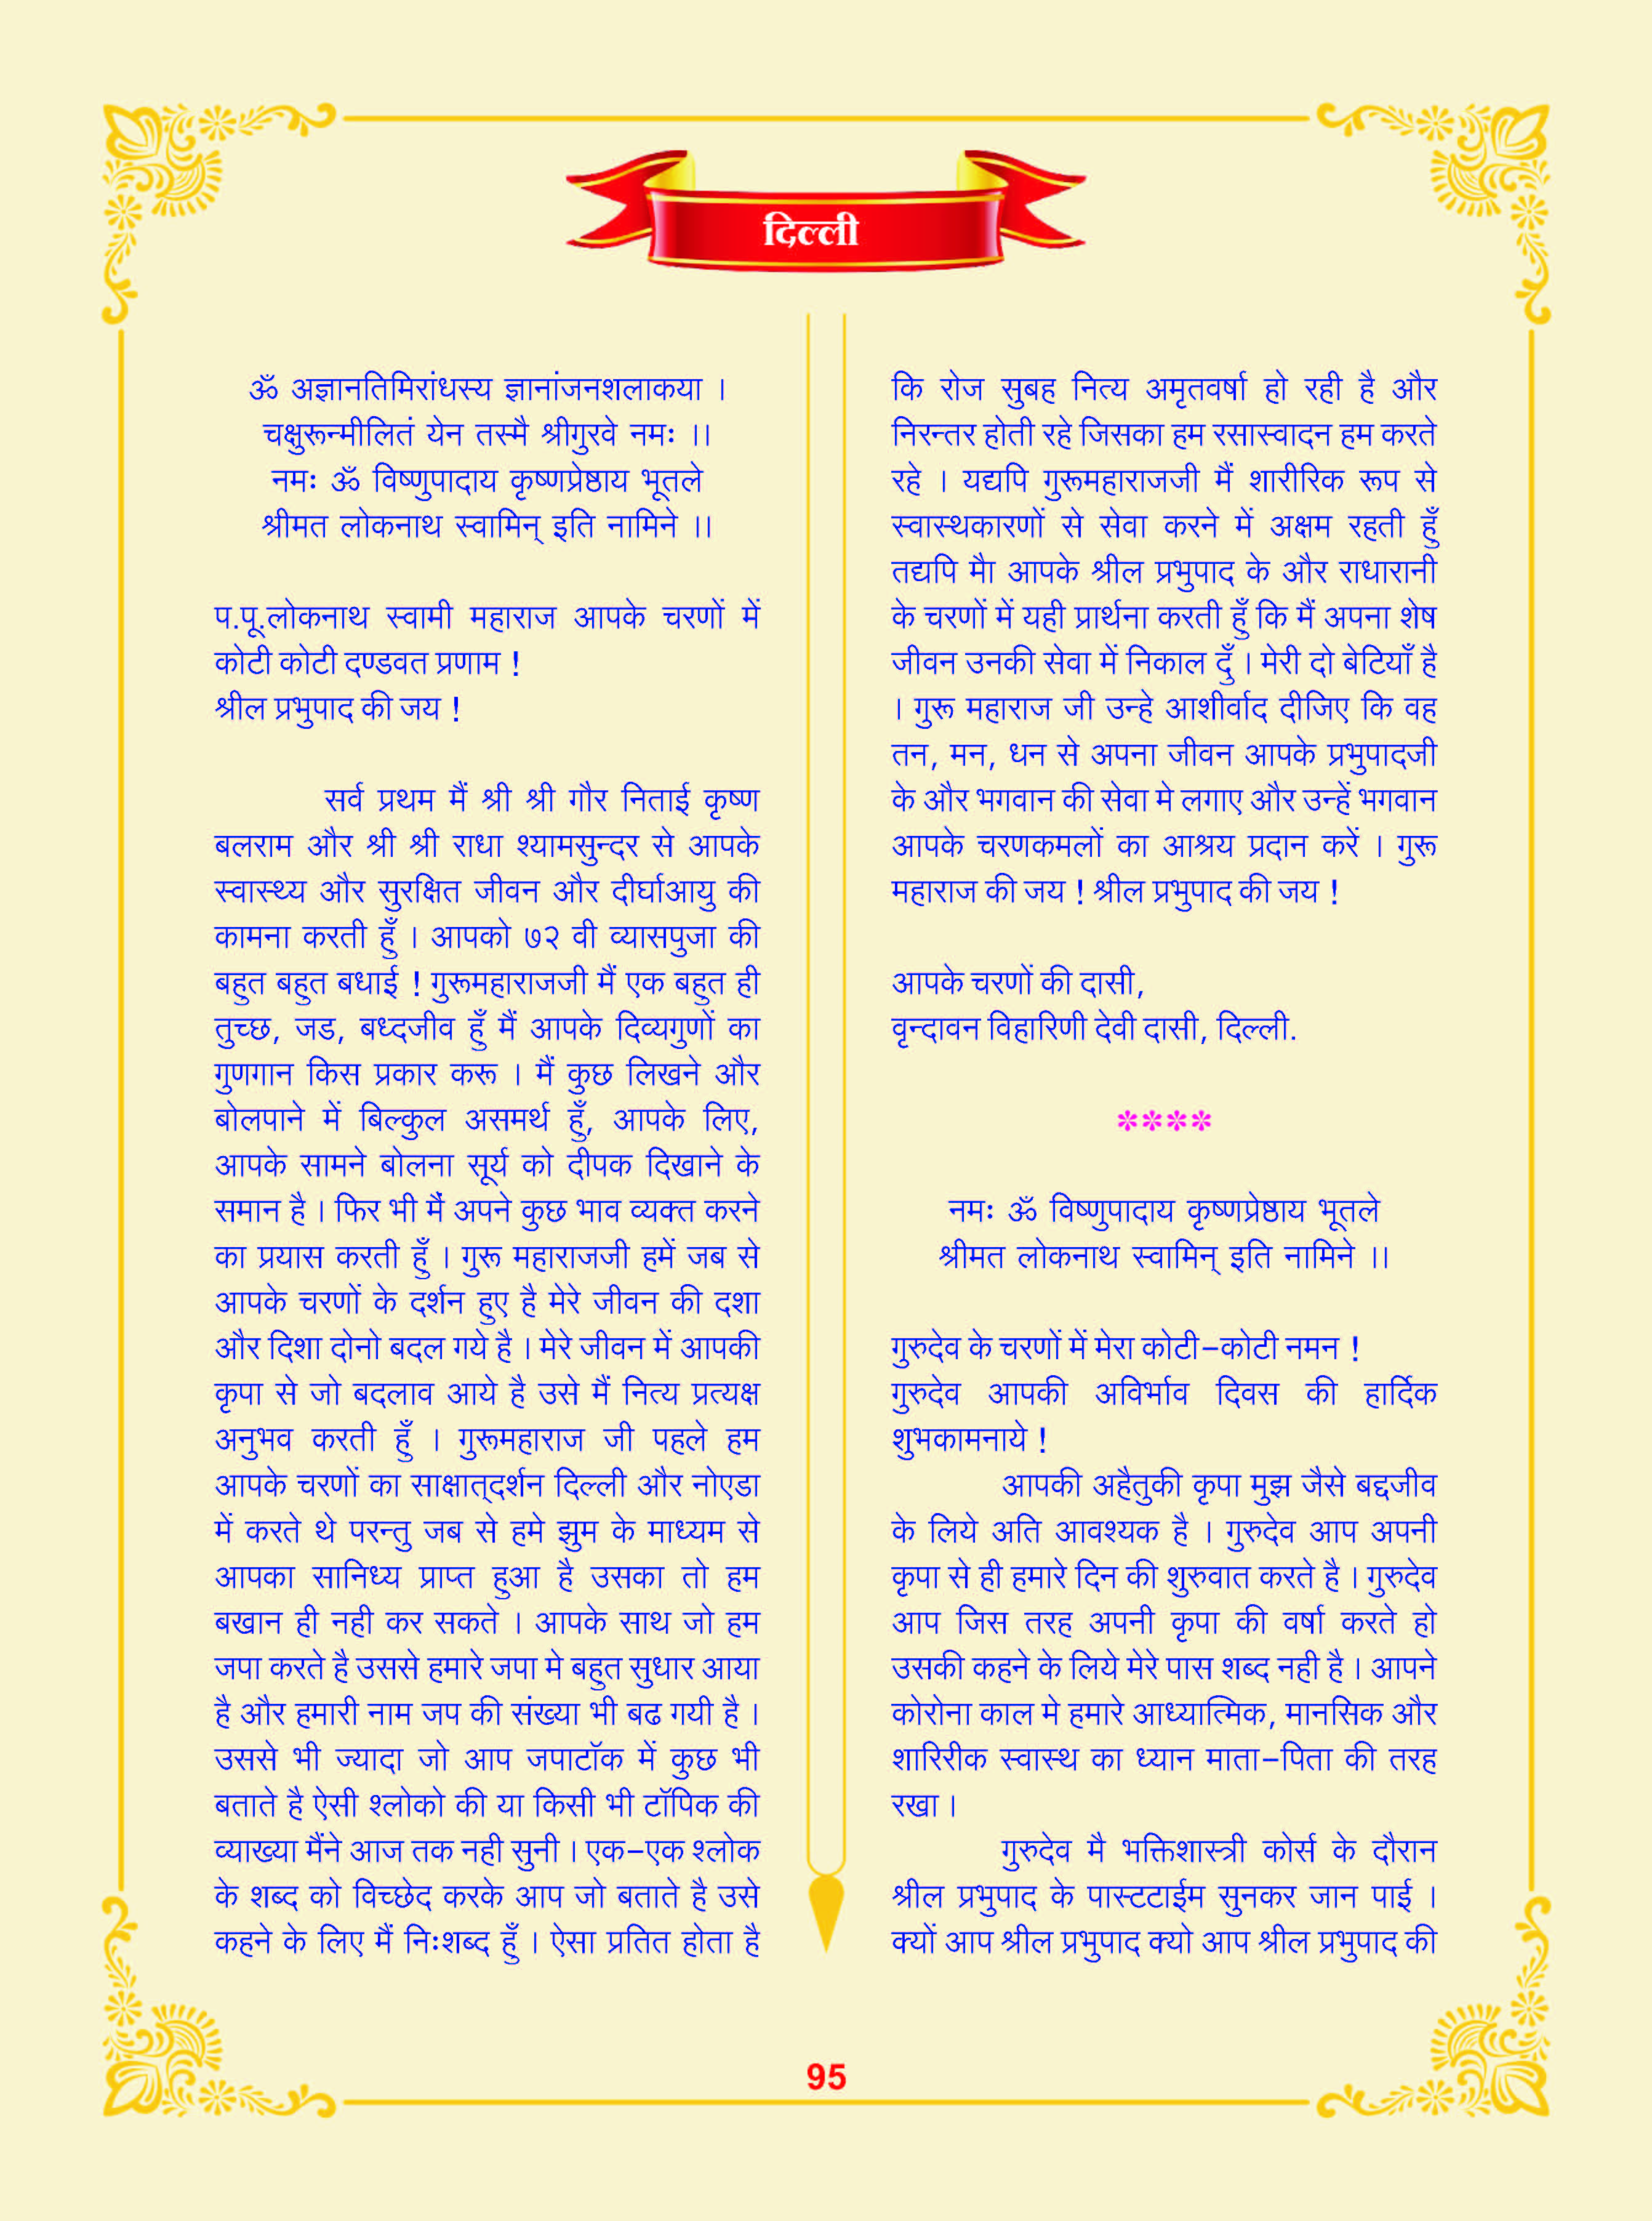 दिल्ली
ॐ अज्ञानतिमिरांधस्य ज्ञानांजनशलाकया ।
चक्षुरून्मीलितं येन तस्मै श्रीगुरवे नमः ।।
नमः ॐ विष्णुपादाय कृष्णप्रेष्ठाय भूतले
श्रीमत लोकनाथ स्वामिन् इति नामिने ।।
प.पू.लोकनाथ स्वामी महाराज आपके चरणों में
कोटी कोटी दण्डवत प्रणाम !
श्रील प्रभुपाद की जय !
सर्व प्रथम मैं श्री श्री गौर निताई कृष्ण
बलराम और श्री श्री राधा श्यामसुन्दर से आपके
स्वास्थ्य और सुरक्षित जीवन और दीर्घाआयु की
कामना करती हूँ । आपको ७२ वी व्यासपुजा की
बहुत बहुत बधाई ! गुरूमहाराजजी मैं एक बहुत ही
तुच्छ, जड, बध्दजीव हूँ मैं आपके दिव्यगुणों का
गुणगान किस प्रकार करू । मैं कुछ लिखने और
बोलपाने में बिल्कुल असमर्थ हूँ, आपके लिए,
आपके सामने बोलना सूर्य को दीपक दिखाने के
समान है । फिर भी मैं अपने कुछ भाव व्यक्त करने
का प्रयास करती हूँ । गुरू महाराजजी हमें जब से
आपके चरणों के दर्शन हुए है मेरे जीवन की दशा
और दिशा दोनो बदल गये है । मेरे जीवन में आपकी
कृपा से जो बदलाव आये है उसे मैं नित्य प्रत्यक्ष
अनुभव करती हूँ । गुरूमहाराज जी पहले हम
आपके चरणों का साक्षात्दर्शन दिल्ली और नोएडा
में करते थे परन्तु जब से हमे झुम के माध्यम से
आपका सानिध्य प्राप्त हुआ है उसका तो हम
बखान ही नही कर सकते । आपके साथ जो हम
जपा करते है उससे हमारे जपा मे बहुत सुधार आया
है और हमारी नाम जप की संख्या भी बढ गयी है ।
उससे भी ज्यादा जो आप जपाटॉक में कुछ भी
बताते है ऐसी श्लोको की या किसी भी टॉपिक की
व्याख्या मैंने आज तक नही सुनी । एक-एक श्लोक
के शब्द को विच्छेद करके आप जो बताते है उसे
कहने के लिए मैं निःशब्द हूँ । ऐसा प्रतित होता है
कि रोज सुबह नित्य अमृतवर्षा हो रही है और
निरन्तर होती रहे जिसका हम रसास्वादन हम करते
रहे । यद्यपि गुरूमहाराजजी मैं शारीरिक रूप से
स्वास्थकारणों से सेवा करने में अक्षम रहती हूँ
तद्यपि मैा आपके श्रील प्रभुपाद के और राधारानी
के चरणों में यही प्रार्थना करती हूँ कि मैं अपना शेष
जीवन उनकी सेवा में निकाल दुँ । मेरी दो बेटियाँ है
। गुरू महाराज जी उन्हे आशीर्वाद दीजिए कि वह
तन, मन, धन से अपना जीवन आपके प्रभुपादजी
के और भगवान की सेवा मे लगाए और उन्हें भगवान
आपके चरणकमलों का आश्रय प्रदान करें । गुरू
महाराज की जय ! श्रील प्रभुपाद की जय !
आपके चरणों की दासी,
वृन्दावन विहारिणी देवी दासी, दिल्ली.
****
नमः ॐ विष्णुपादाय कृष्णप्रेष्ठाय भूतले
श्रीमत लोकनाथ स्वामिन् इति नामिने ।।
गुरुदेव के चरणों में मेरा कोटी-कोटी नमन !
गुरुदेव आपकी अविर्भाव दिवस की हार्दिक
शुभकामनाये !
आपकी अहैतुकी कृपा मुझ जैसे बद्दजीव
के लिये अति आवश्यक है । गुरुदेव आप अपनी
कृपा से ही हमारे दिन की शुरुवात करते है । गुरुदेव
आप जिस तरह अपनी कृपा की वर्षा करते हो
उसकी कहने के लिये मेरे पास शब्द नही है । आपने
कोरोना काल मे हमारे आध्यात्मिक, मानसिक और
शारिरीक स्वास्थ का ध्यान माता-पिता की तरह
रखा ।
गुरुदेव मै भक्तिशास्त्री कोर्स के दौरान
श्रील प्रभुपाद के पास्टटाईम सुनकर जान पाई ।
क्यों आप श्रील प्रभुपाद क्यो आप श्रील प्रभुपाद की
95